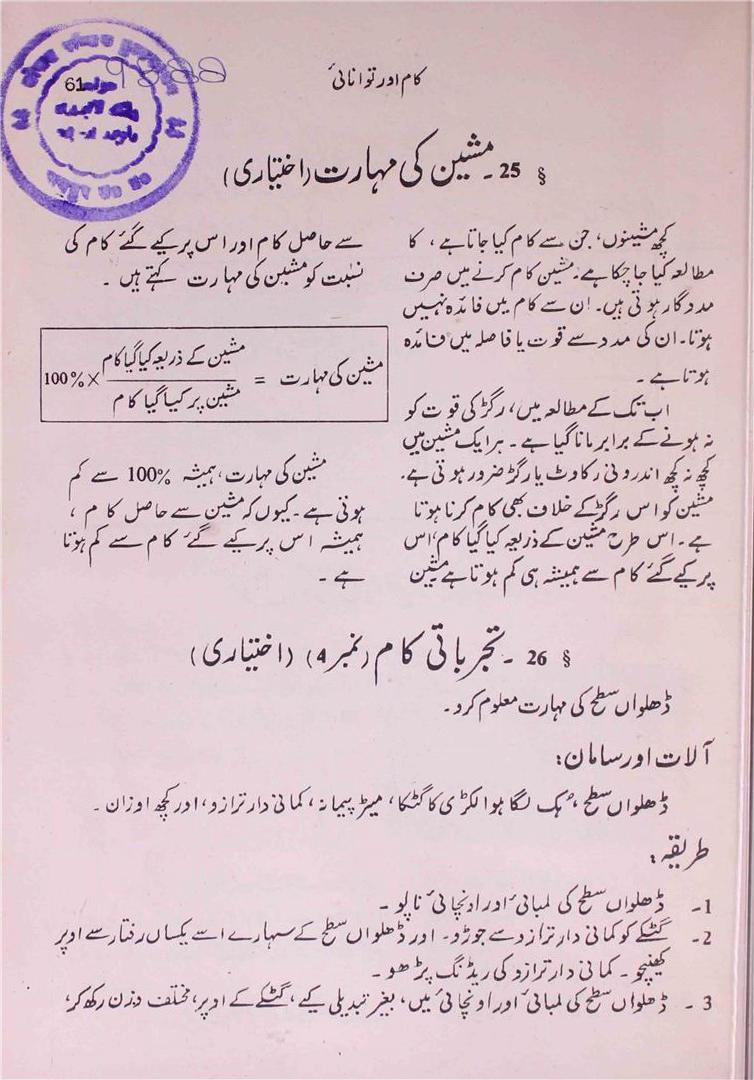 کام اور توانائی
61
9888
§ 25 ۔ مشین کی مہارت (اختیاری)
کچھ مشینوں، جن سے کام کیا جاتا ہے، کا
مطالعہ کیا جا چکا ہے۔ مشین کام کرنے میں صرف
مددگار ہوتی ہیں۔ ان سے کام میں فائدہ نہیں
ہوتا۔ ان کی مدد سے قوت یا فاصلہ میں فائدہ
ہوتا ہے ۔
اب تک کے مطالعہ میں، رگڑ کی قوت کو
نہ ہونے کے برابر مانا گیا ہے ۔ ہر ایک مشین میں
کچھ نہ کچھ اندرونی رکاوٹ یا رگڑ ضرور ہوتی ہے۔
مشین کو اس رگڑ کے خلاف بھی کام کرنا ہوتا
ہے ۔ اس طرح مشین کے ذریعہ کیا گیا کام، اس
پر کیے گئے کام سے ہمیشہ ہی کم ہوتا ہے مشین
سے حاصل کام اور اس پر کیے گئے کام کی
نسبت کو مشین کی مہارت کہتے ہیں ۔
مشین کی مہارت = مشین کے ذریعہ کیا گیا کام / مشین پر کیا گیا کام × 100%
مشین کی مہارت، ہمیشہ 100% سے کم
ہوتی ہے ۔ کیوں کہ مشین سے حاصل کام ،
ہمیشہ اس پر کیے گئے کام سے کم ہوتا
ہے ۔
§ 26 ۔ تجرباتی کام (نمبر 4) (اختیاری)
ڈھلواں سطح کی مہارت معلوم کرو ۔
آلات اور سامان:
ڈھلواں سطح، ہُک لگا ہوا لکڑی کا گٹکا، میٹر پیمانہ، کمانی دار ترازو، اور کچھ اوزان ۔
طریقہ:
1۔ ڈھلواں سطح کی لمبائی اور اونچائی ناپو ۔
2۔ گٹکے کو کمانی دار ترازو سے جوڑو ۔ اور ڈھلواں سطح کے سہارے اسے یکساں رفتار سے اوپر
کھینچو ۔ کمانی دار ترازو کی ریڈنگ پڑھو ۔
3۔ ڈھلواں سطح کی لمبائی اور اونچائی میں، بغیر تبدیلی کیے، گٹکے کے اوپر، مختلف وزن رکھ کر،